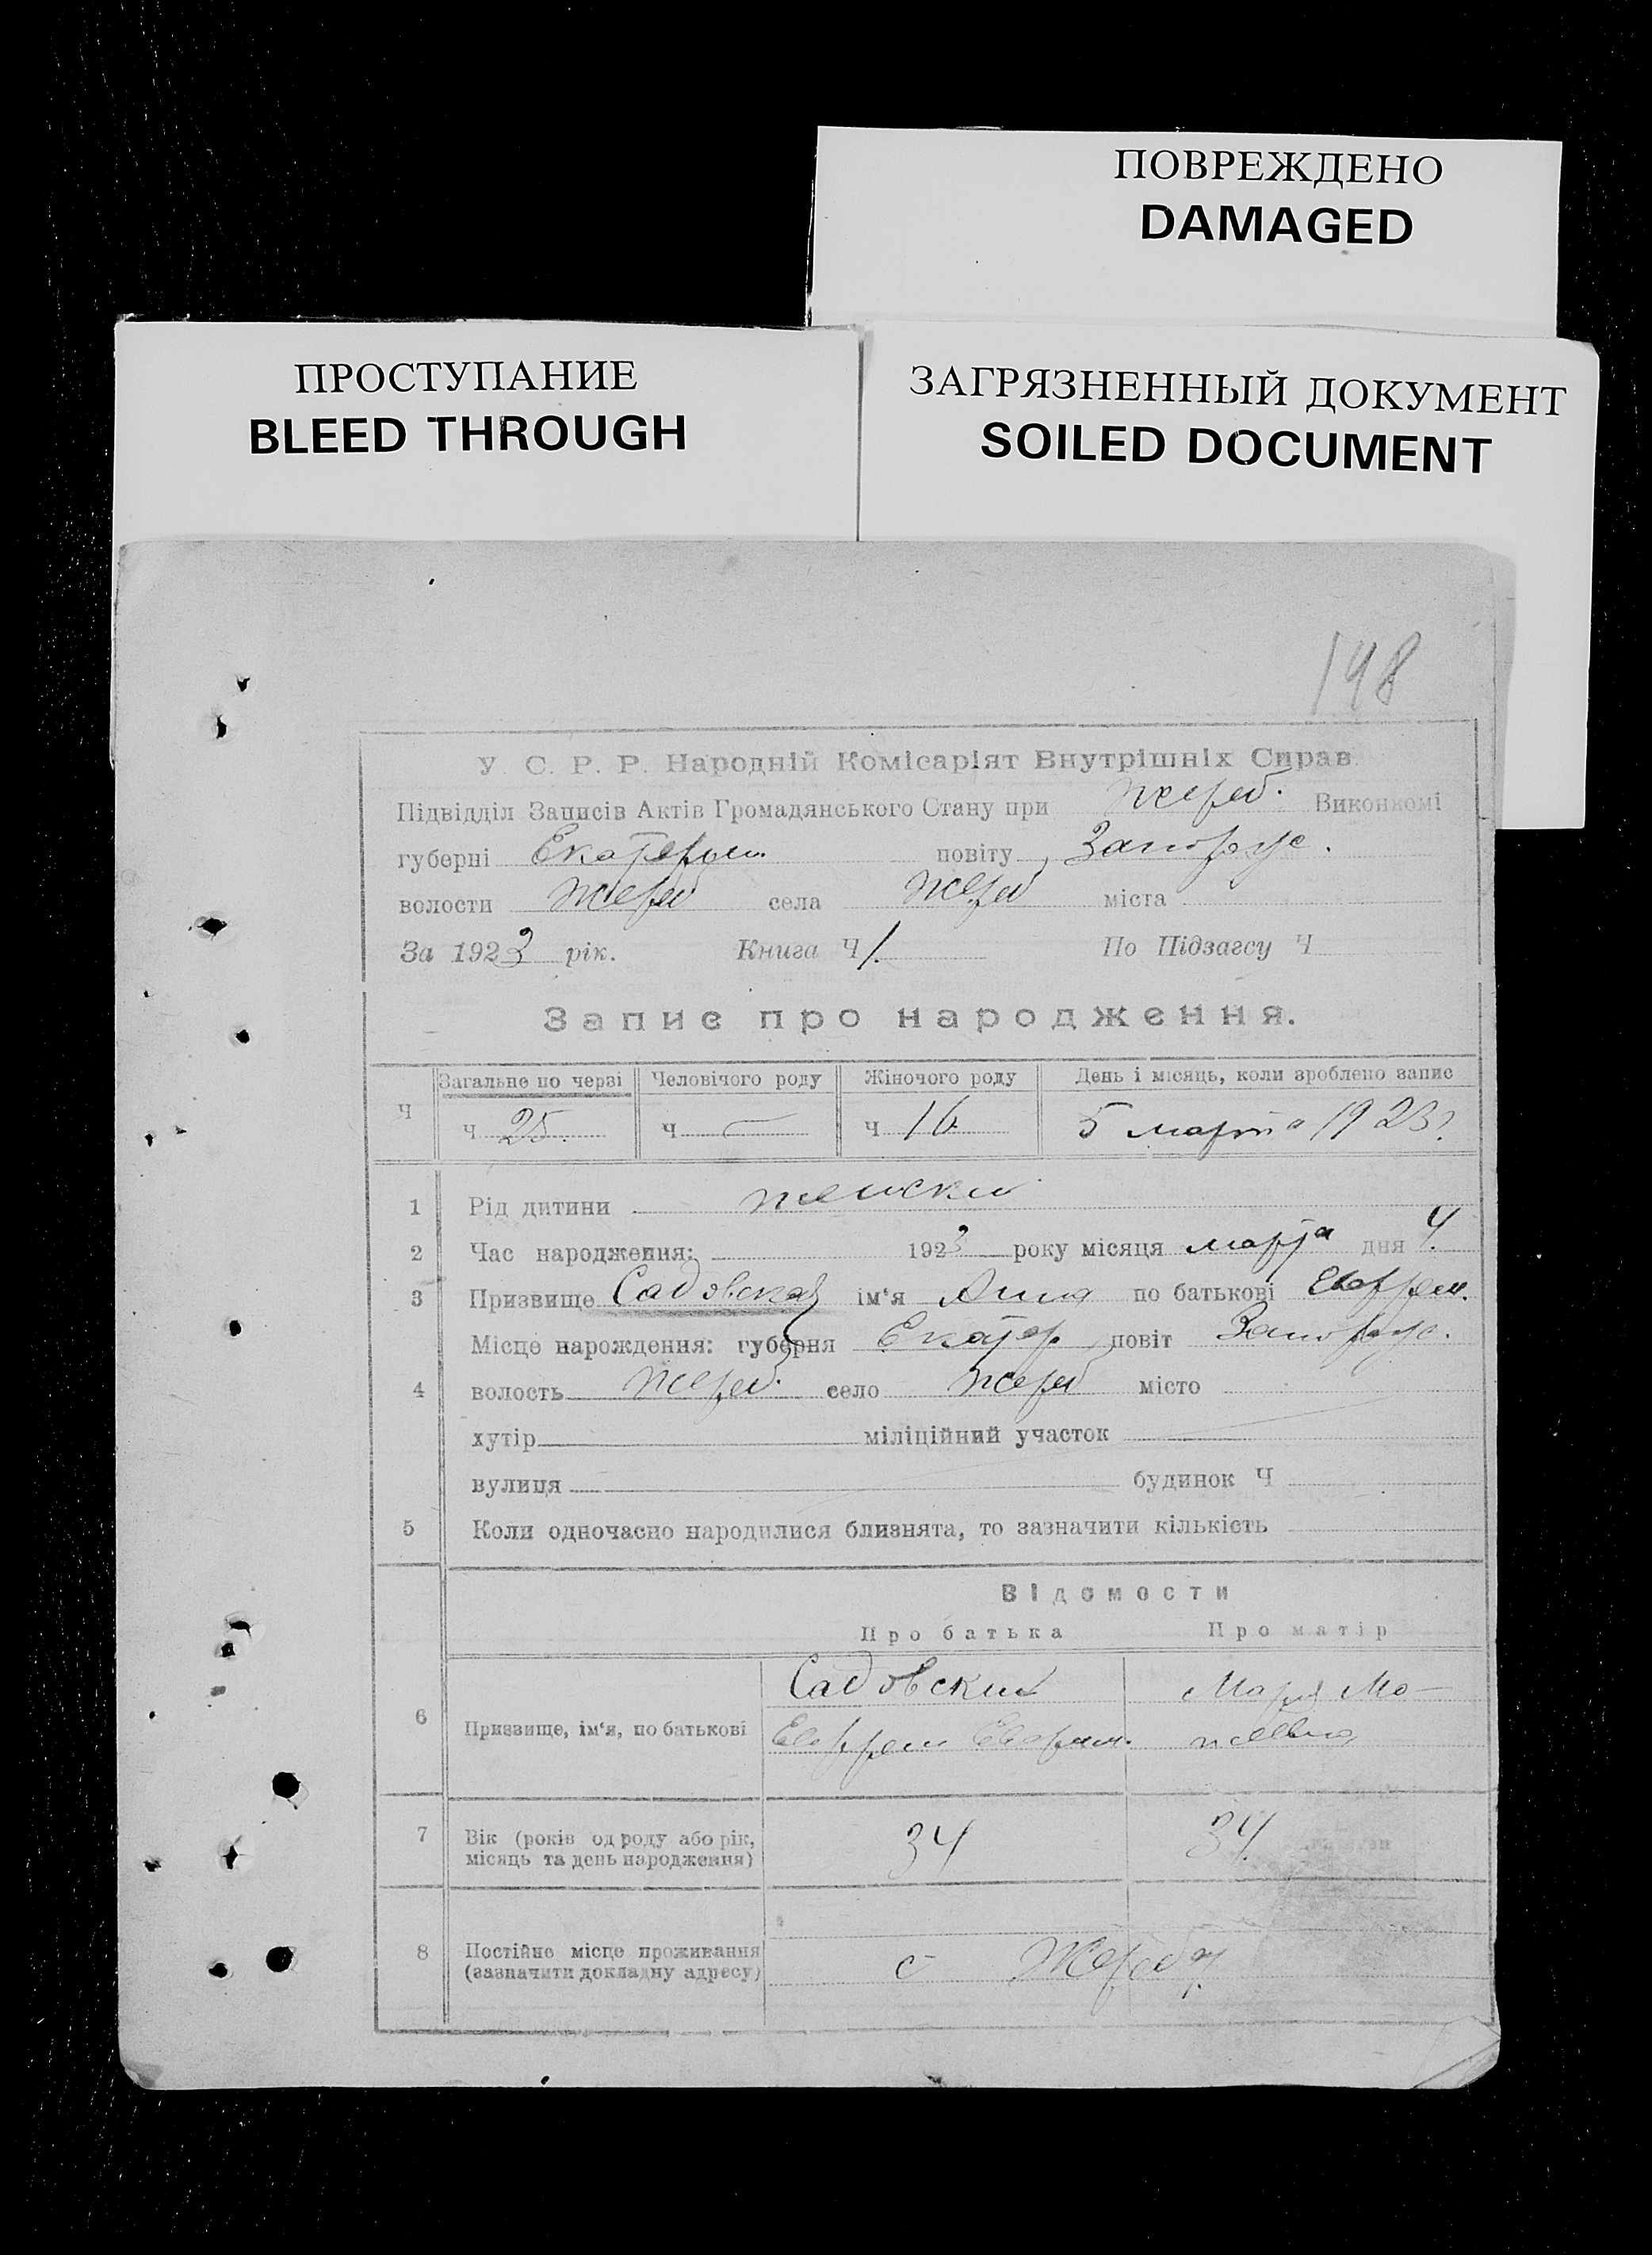 ПОВРЕЖДЕНО
DAMAGED
ПРОСТУПАНИЕ
BLEED THROUGH
ЗАГРЯЗНЕННЫЙ ДОКУМЕНТ
SOILED DOCUMENT
198
У. С. Р. Р. Народній Комісаріят Внутрішніх Справ.
Підвідділ Записів Актів Громадянського Стану при Жереб. Виконкомі
губерні Екатерин. повіту Запорож.
волости Жереб села Жереб міста
За 1923 рік. Книга Ч 1. По Підзагсу Ч
Запис про народження.
Ч Загальне по черзі Человічого роду Жіночого роду День і місяць, коли зроблено запис
ч 25. ч — ч 16 5 марта 1923.
1 Рід дитини женски
2 Час народження: 1923 року місяця марта дня 4.
3 Призвище Садовская ім‘я Анна по батькові Евфрем.
Місце нарождення: губерня Екатер повіт Запорож.
4 волость Жереб. село Жереб місто
хутір міліційний участок
вулиця будинок Ч
5 Коли одночасно народилися близнята, то зазначити кількість
Відомости
Про батька Про матір
6 Призвище, ім‘я, по батькові Садовский Мария Мо-
Евфрем
7 Вік (років од роду або рік, 34 34.
місяць та день народження)
8 Постійне місце проживання с Жереб
(зазначити докладну адресу)